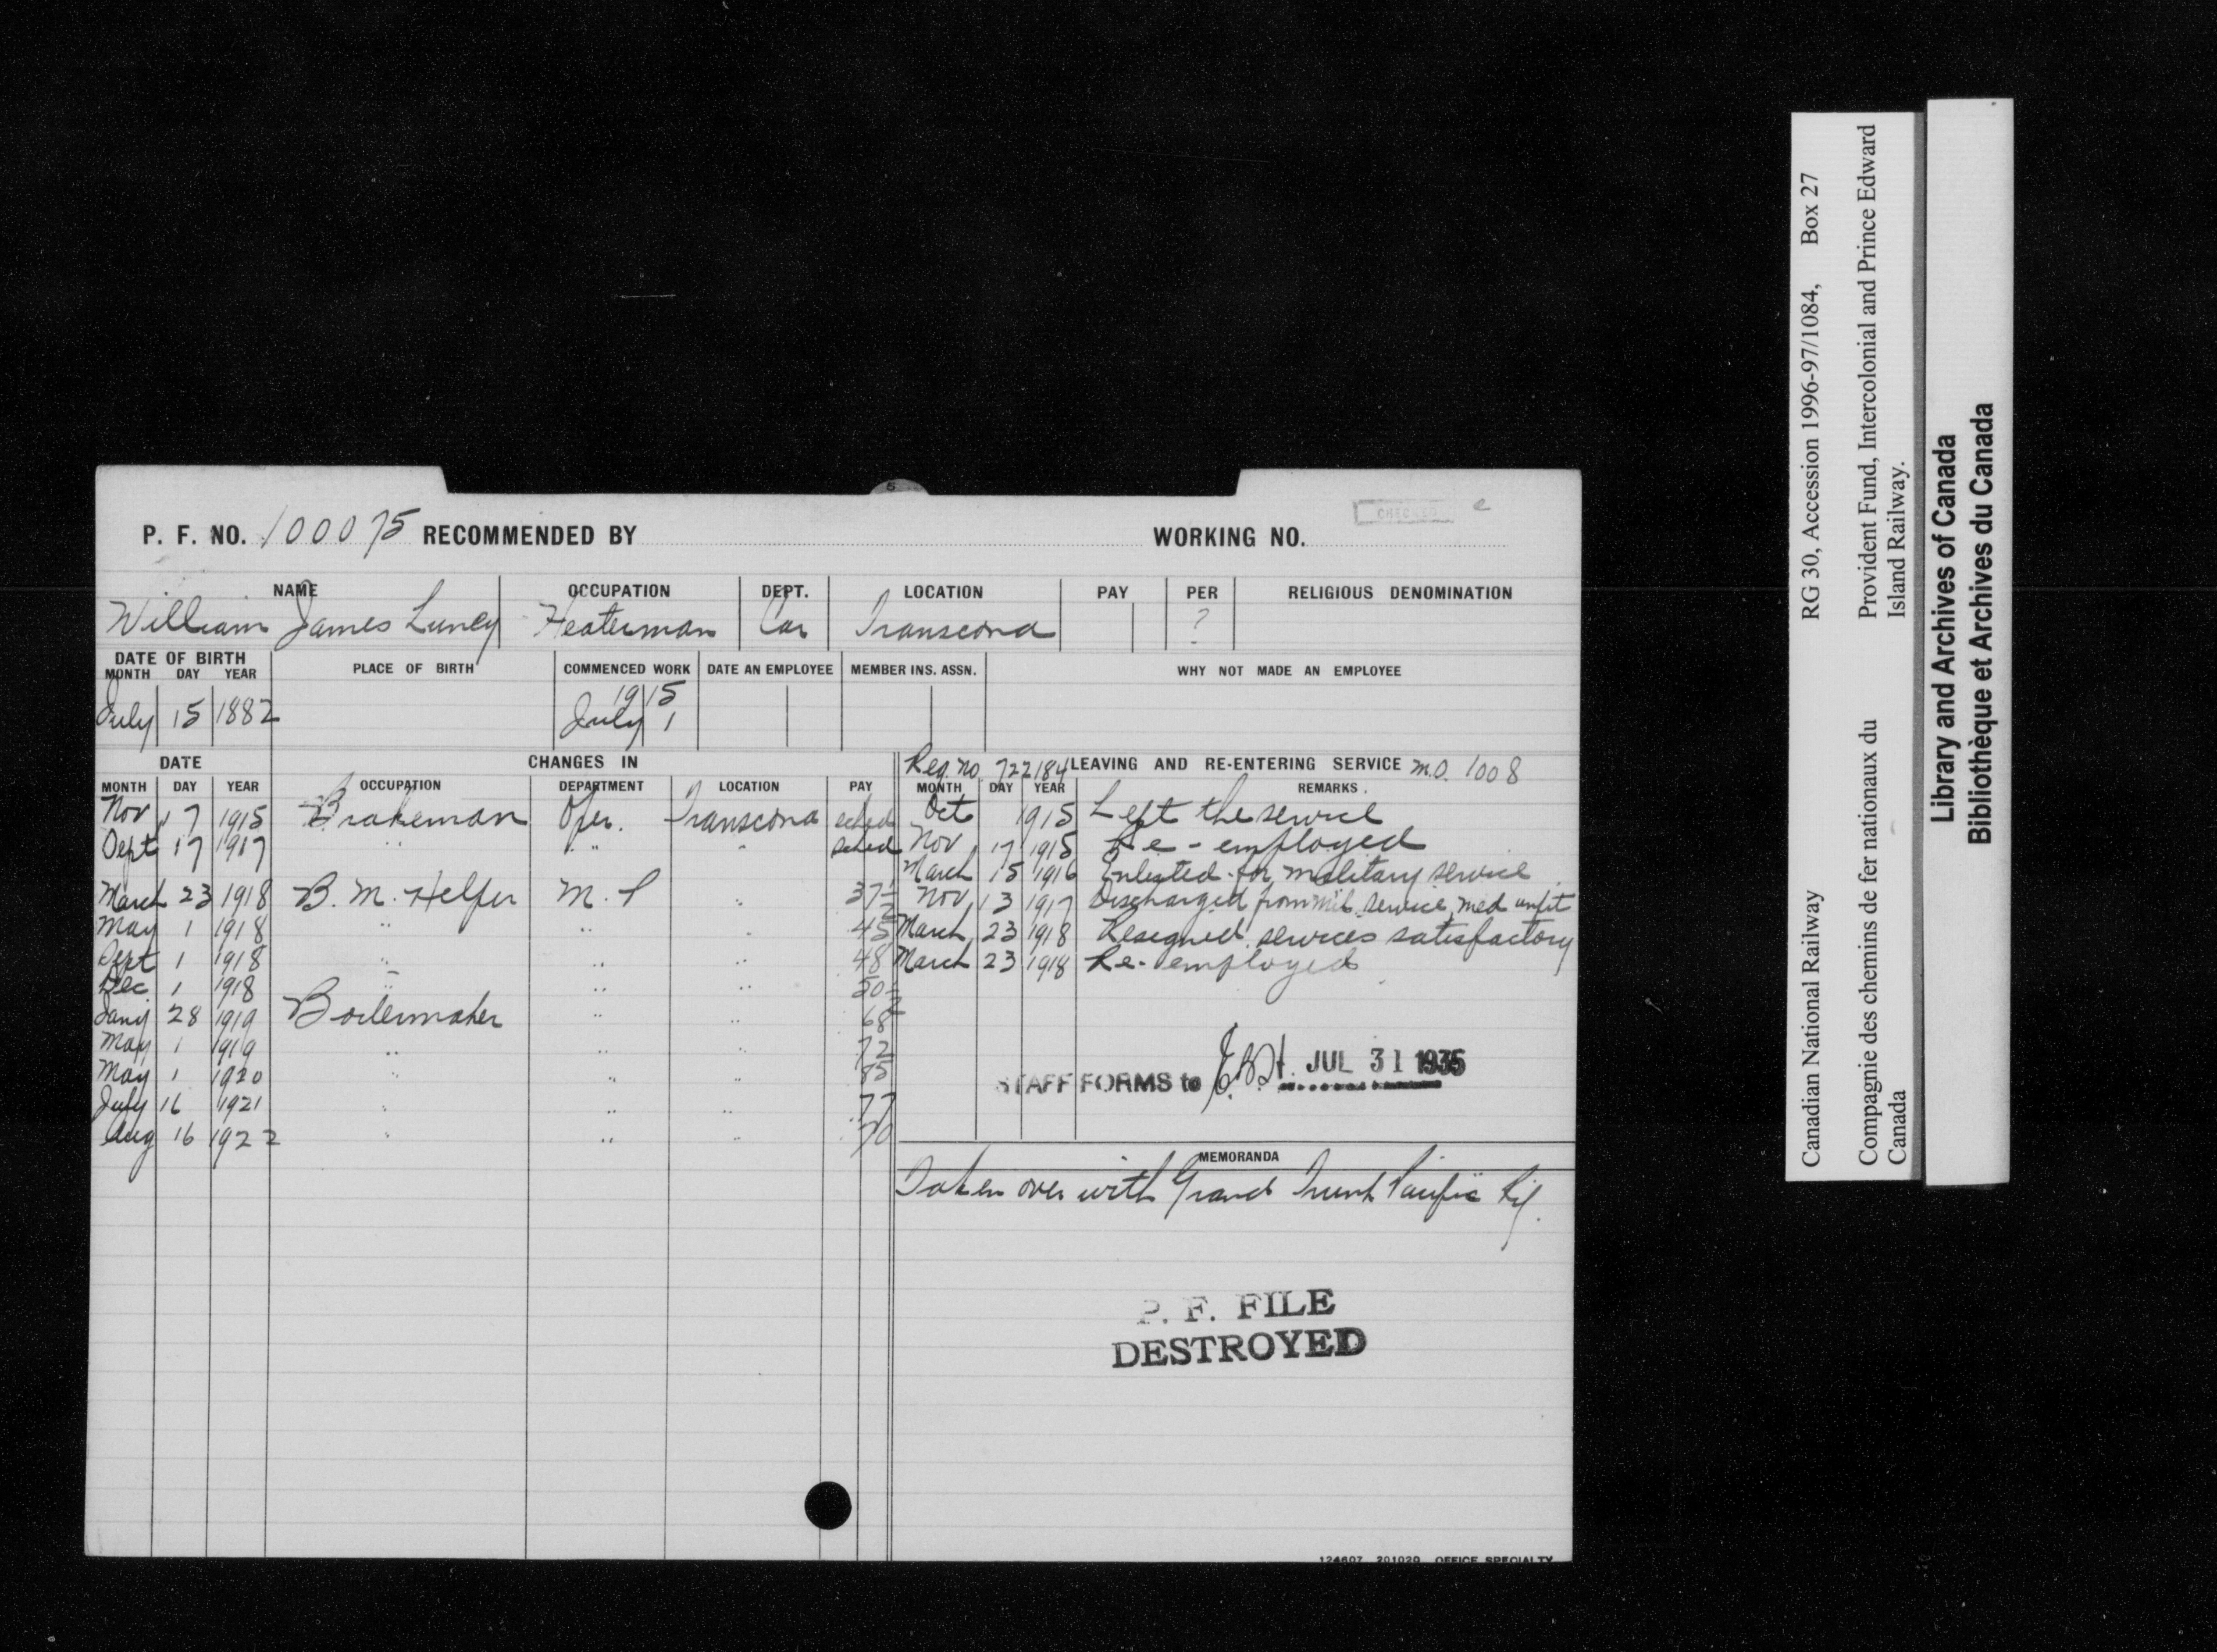 5
CHECKED e
P. F. NO. 100075 RECOMMENDED BY WORKING NO.
NAME OCCUPATION DEPT. LOCATION PAY PER RELIGIOUS DENOMINATION
William James Luncy Heaterman Car Transcona ?
DATE OF BIRTH PLACE OF BIRTH COMMENCED WORK DATE AN EMPLOYEE MEMBER INS. ASSN. WHY NOT MADE AN EMPLOYEE
MONTH DAY YEAR
1915
July 15 1882 July 1
DATE CHANGES IN Reg. no. 722184 LEAVING AND RE-ENTERING SERVICE M.O. 1008
MONTH DAY YEAR OCCUPATION DEPARTMENT LOCATION PAY MONTH DAY YEAR REMARKS
Nov 17 1915 Brakeman Oper. Transcona sched Oct 1915 Left the service
Sept 17 1917 " " " sched Nov 17 1915 Re-employed
March 15 1916 Enlisted for military service
March 23 1918 B. M. Helper M. P " 37½ Nov 13 1917 Discharged from mil. service, med unfit
May 1 1918 " " " 45 March 23 1918 Resigned services satisfactory
Sept 1 1918 " " " 48 March 23 1918 Re-employed
Dec 1 1918 " " " 50½
Jany 28 1919 Boilermaker " " 68
May 1 1919 " " " 72
May 1 1920 " " " 85
July 16 1921 " " " 77
Aug 16 1922 " " " 70
STAFF FORMS to JUL 31 1935
MEMORANDA
Taken over with Grand Trunk Pacific Rly.
P. F. FILE
DESTROYED
124607 201020 OFFICE SPECIALTY
Canadian National Railway RG 30, Accession 1996-97/1084, Box 27
Compagnie des chemins de fer nationaux du Canada
Provident Fund, Intercolonial and Prince Edward Island Railway.
Library and Archives of Canada
Bibliothèque et Archives du Canada